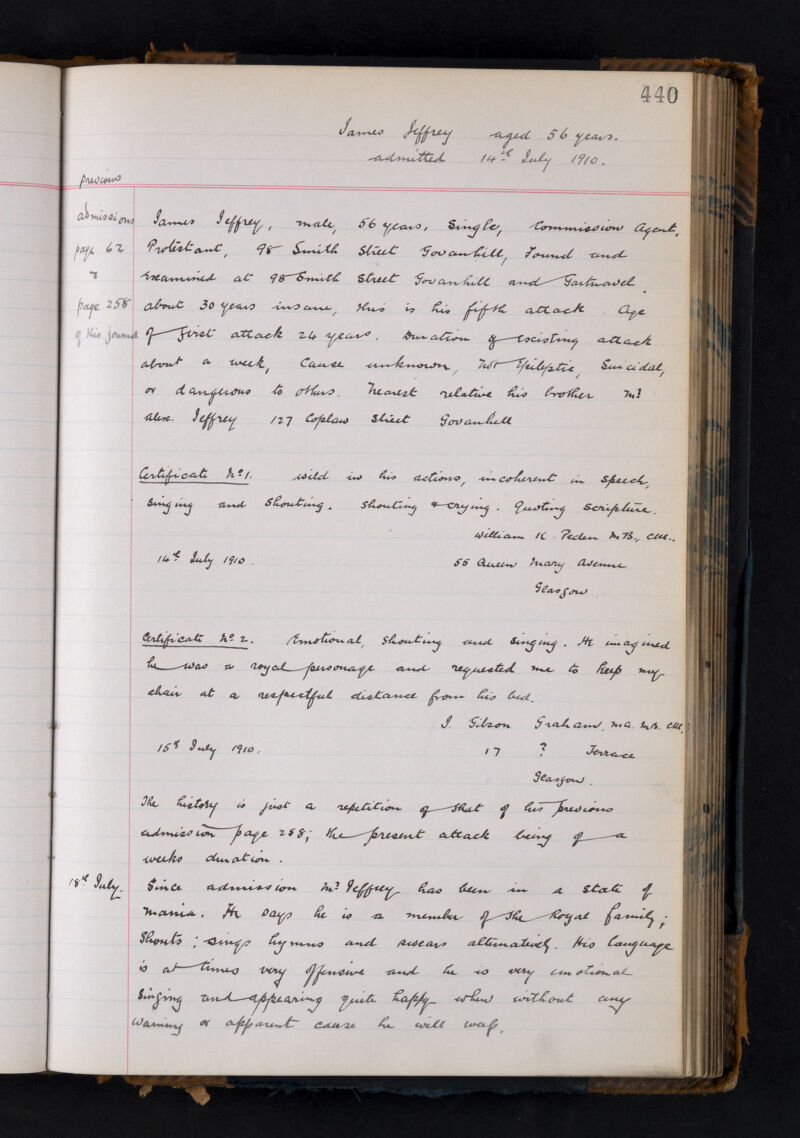 440
James Jeffrey aged 56 years.
admitted 14th July 1910.
previous
admissions
page 62
&
page 258
of this journal
James Jeffrey, male, 56 years, Single, Commission Agent,
Protestant, 98 Smith Street Govanhill, Found and
Examined at 98 Smith Street Govanhill and Gartnavel.
about 30 years insane, this is his fifth attack. Age
of First attack 24 years. Duration of existing attack
about a week, Cause unknown, Not Epileptic, Suicidal,
or dangerous to others. Nearest relative his brother Mr
Alex. Jeffrey 127 Coplaw Street Govanhill
Certificate No 1. wild in his actions, incoherent in speech,
singing and shouting. Shouting & crying. Quoting scripture.
William K. Peden M.B., C.M..
14th July 1910. 55 Queen Mary Avenue
Glasgow.
Certificate No 2. Emotional, Shouting and singing. He imagined
he was a royal personage and requested me to keep my
chair at a respectful distance from his bed.
J. Gibson Graham, M.A. M.B. C.M.
15th July 1910. 17 ? Terrace
Glasgow.
The history is just a repetition of that of his previous
admission page 258; the present attack being of a
weeks duration.
18th July. Since admission Mr Jeffrey has been in a state of
mania. He says he is a member of the Royal family;
Shouts; sings hymns and swears alternatively. His language
is at times very offensive and he is very emotional
Singing and appearing quite happy when without any
warning or apparent cause he will weep.